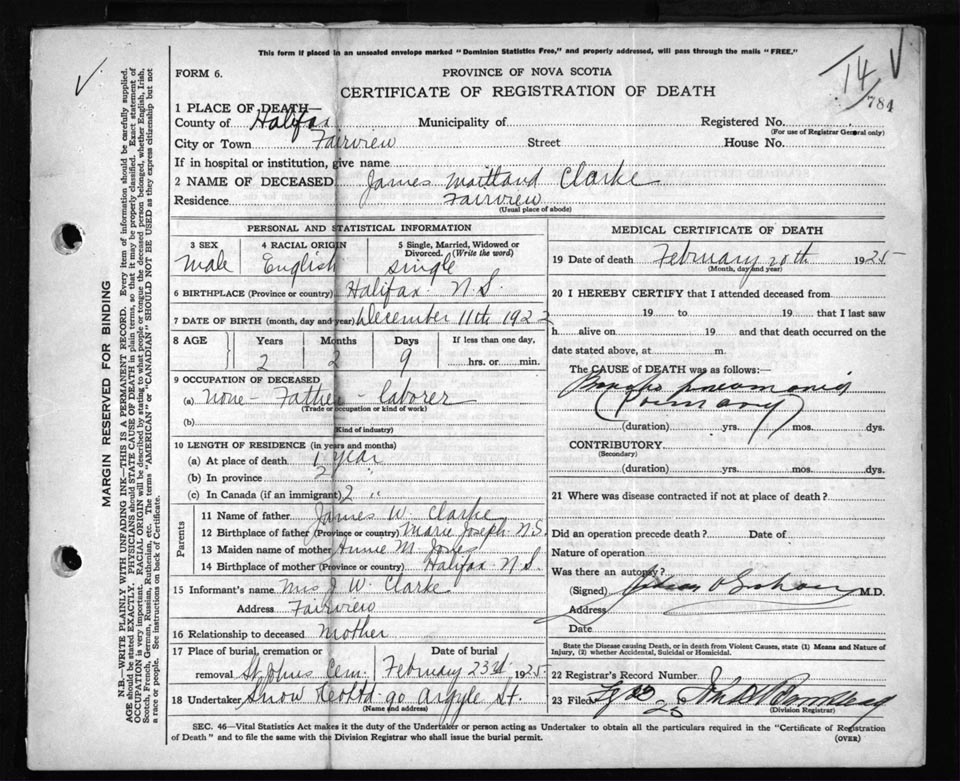 This form if placed in an unsealed envelope marked "Dominion Statistics Free," and properly addressed, will pass through the mails "FREE."
14
784
FORM 6.
PROVINCE OF NOVA SCOTIA
CERTIFICATE OF REGISTRATION OF DEATH
1 PLACE OF DEATH—
County of Halifax Municipality of Registered No.
(For use of Registrar General only)
City or Town Fairview Street House No.
If in hospital or institution, give name
2 NAME OF DECEASED James Maitland Clarke
Residence Fairview
(Usual place of abode)
PERSONAL AND STATISTICAL INFORMATION
3 SEX 4 RACIAL ORIGIN 5 Single, Married, Widowed or Divorced. (Write the word)
Male English single
6 BIRTHPLACE (Province or country) Halifax N.S.
7 DATE OF BIRTH (month, day and year) December 11th 1922
8 AGE Years Months Days If less than one day,
2 2 9 hrs. or min.
9 OCCUPATION OF DECEASED
(a) None - Father - laborer
(Trade or occupation or kind of work)
(b)
(Kind of industry)
10 LENGTH OF RESIDENCE (in years and months)
(a) At place of death 1/2 year
(b) In province
(c) In Canada (if an immigrant) 2 "
Parents
11 Name of father James W. Clarke
12 Birthplace of father (Province or country) Marie Joseph N.S.
13 Maiden name of mother Annie M. Jones
14 Birthplace of mother (Province or country) Halifax N.S.
15 Informant's name Mrs J W. Clarke
Address Fairview
16 Relationship to deceased Mother
17 Place of burial, cremation or removal Date of burial
St Johns Cem. February 23rd 1925
18 Undertaker Snow & Co Ltd 90 Argyle St.
(Name and address)
MEDICAL CERTIFICATE OF DEATH
19 Date of death February 20th 1925
(Month, day and year)
20 I HEREBY CERTIFY that I attended deceased from
19 to 19 that I last saw
h alive on 19 and that death occurred on the
date stated above, at m.
The CAUSE of DEATH was as follows:
Broncho pneumonia
(Primary)
(duration) yrs. mos. dys.
CONTRIBUTORY
(Secondary)
(duration) yrs. mos. dys.
21 Where was disease contracted if not at place of death?
Did an operation precede death? Date of
Nature of operation
Was there an autopsy?
(Signed) M.D.
Address
Date
State the Disease causing Death, or in death from Violent Causes, state (1) Means and Nature of Injury, (2) whether Accidental, Suicidal or Homicidal.
22 Registrar's Record Number
23 Filed 19
(Division Registrar)
SEC. 46—Vital Statistics Act makes it the duty of the Undertaker or person acting as Undertaker to obtain all the particulars required in the "Certificate of Registration
of Death" and to file the same with the Division Registrar who shall issue the burial permit.
(OVER)
MARGIN RESERVED FOR BINDING
N.B.—WRITE PLAINLY WITH UNFADING INK—THIS IS A PERMANENT RECORD. Every item of information should be carefully supplied.
AGE should be stated EXACTLY. PHYSICIANS should STATE CAUSE OF DEATH in plain terms, so that it may be properly classified. Exact statement of
OCCUPATION is very important. RACIAL ORIGIN will be described by stating to what people or tongue the deceased person belonged, whether English, Irish,
Scotch, French, German, Russian, Ruthenian, etc. The terms "AMERICAN" or "CANADIAN" SHOULD NOT BE USED as they express citizenship but not
a race or people. See instructions on back of Certificate.